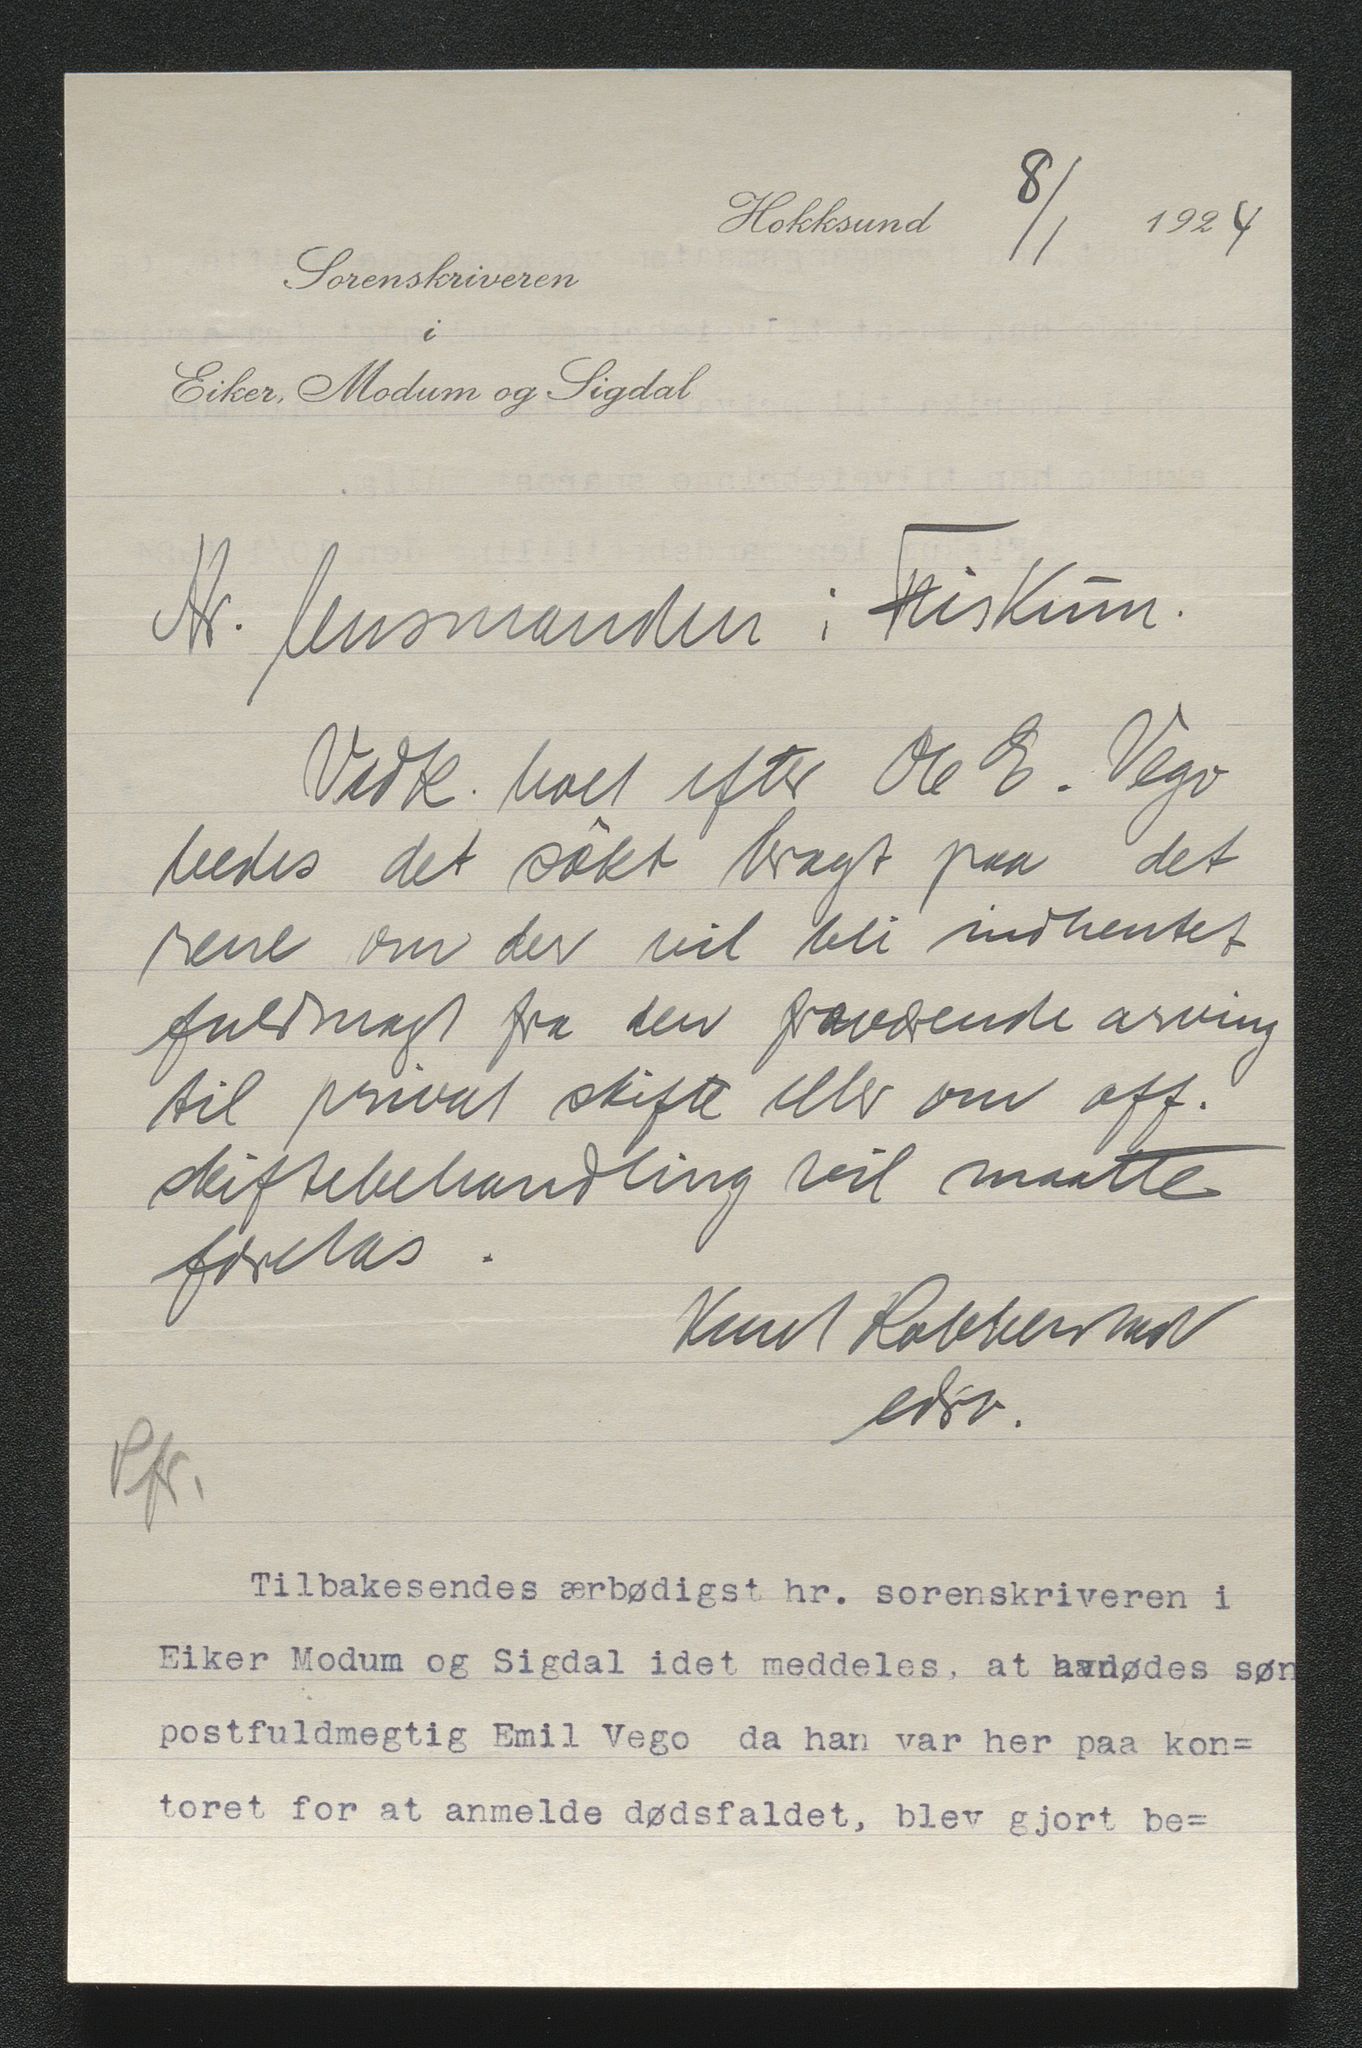 Hokksund 8/1 1924
Sorenskriveren
i
Eiker, Modum og Sigdal
Hr. lensmanden i Fiskum.
Vedk. boet efter Ole E. Vego
bedes det søkt bragt paa det
rene om der vil bli indhentet
fuldmagt fra den fraværende arving
til privat skifte eller om off.
skiftebehandling vil maatte
foretas.
Knut Robberstad
edsv.
Pfr.
Tilbakesendes ærbødigst hr. sorenskriveren i
Eiker Modum og Sigdal idet meddeles, at avdødes søn
postfuldmegtig Emil Vego da han var her paa kon=
toret for at anmelde dødsfaldet, blev gjort be=